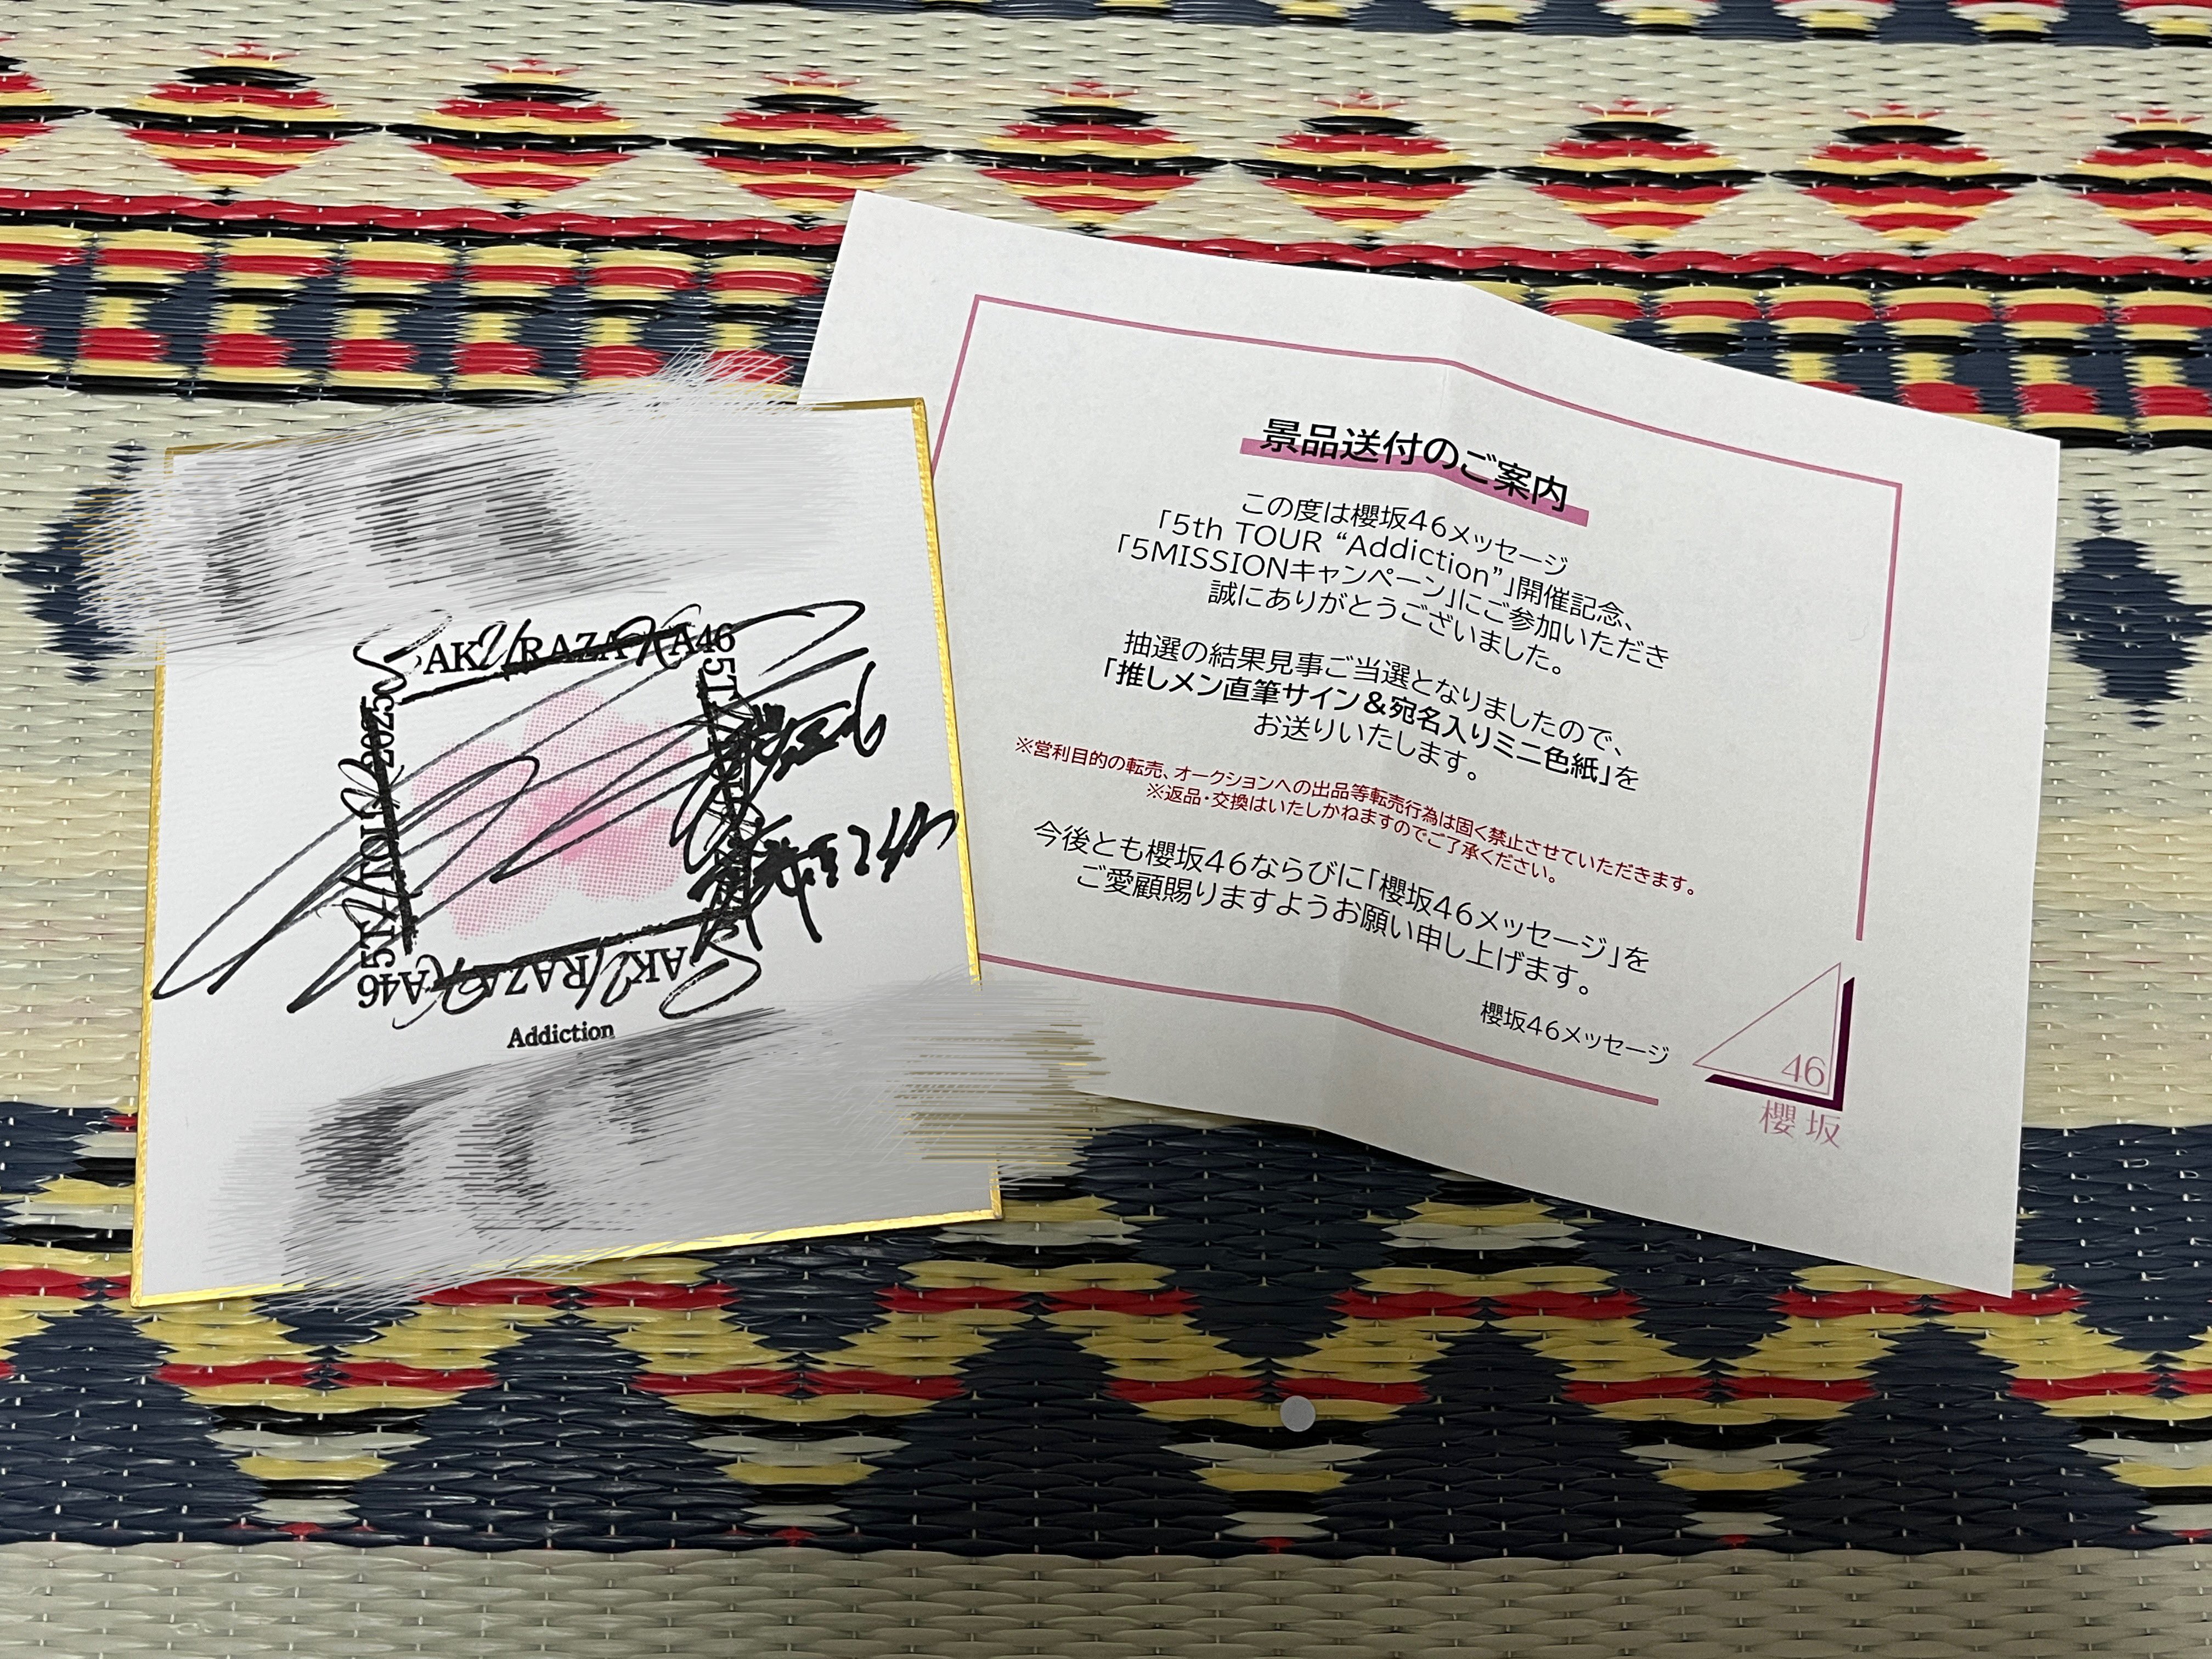 SAKURAZAKA46
5TH TOUR 2025
SAKURAZAKA46
5TH TOUR 2025
Addiction
景品送付のご案内
この度は櫻坂46メッセージ
「5th TOUR “Addiction”」開催記念、
「5MISSIONキャンペーン」にご参加いただき
誠にありがとうございました。
抽選の結果見事ご当選となりましたので、
「推しメン直筆サイン＆宛名入りミニ色紙」を
お送りいたします。
※営利目的の転売、オークションへの出品等転売行為は固く禁止させていただきます。
※返品・交換はいたしかねますのでご了承ください。
今後とも櫻坂46ならびに「櫻坂46メッセージ」を
ご愛顧賜りますようお願い申し上げます。
櫻坂46メッセージ
46
櫻坂